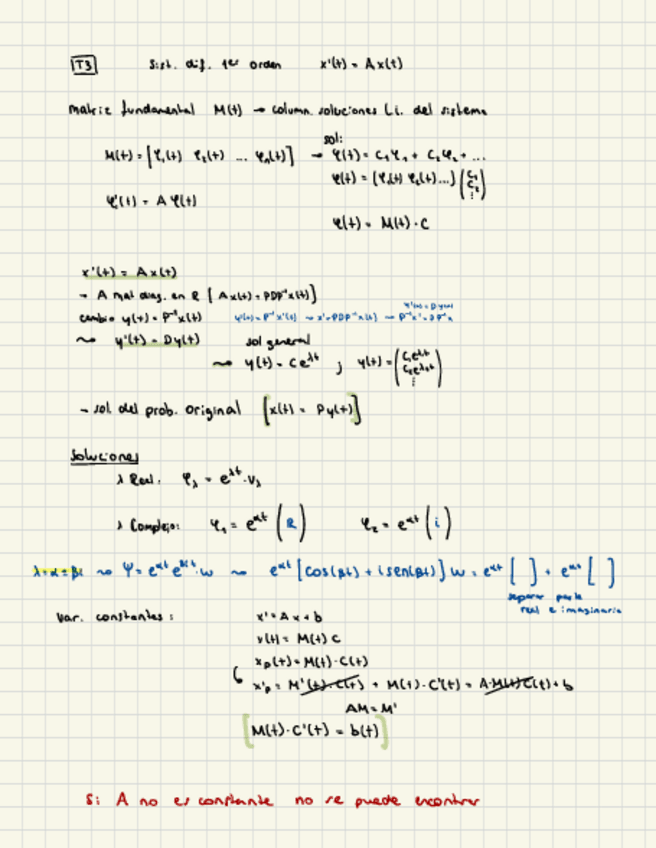 T3 Sist. dif. 1er orden x'(t) = A x(t)
matriz fundamental M(t) → column. soluciones l.i. del sistema
sol:
M(t) = [φ₁(t) φ₂(t) ... φₙ(t)] → φ(t) = C₁φ₁ + C₂φ₂ + ...
φ(t) = (φ₁(t) φ₂(t) ...) (C₁ C₂ ⋮)
φ'(t) = A φ(t)
φ(t) = M(t) · C
x'(t) = A x(t)
- A mat diag. en R [ A x(t) = PDP⁻¹x(t) ]
y'(t) = D y(t)
cambio y(t) = P⁻¹x(t) y'(t) = P⁻¹x'(t) → x' = PDP⁻¹x(t) → P⁻¹x' = DP⁻¹x
⤳ y'(t) = Dy(t) sol general
⤳ y(t) = C e^λt ; y(t) = (C₁e^λt C₂e^λ₂t ⋮)
- sol. del prob. original [x(t) = Py(t)]
Soluciones
λ Real. φλ = e^λt · vλ
λ Complejo: φ₁ = e^αt (R) φ₂ = e^αt (i)
λ = α ± βi ⤳ Ψ = e^αt e^βit · w ⤳ e^αt [cos(βt) + i sen(βt)] w = e^αt [ ] + e^αt [ ]
separar parte
real e imaginaria
Var. constantes: x' = Ax + b
x(t) = M(t) C
xp(t) = M(t) · C(t)
x'p = M'(t) · C(t) + M(t) · C'(t) = A · M(t) C(t) + b
AM = M'
[M(t) · C'(t) = b(t)]
Si A no es constante no se puede encontrar